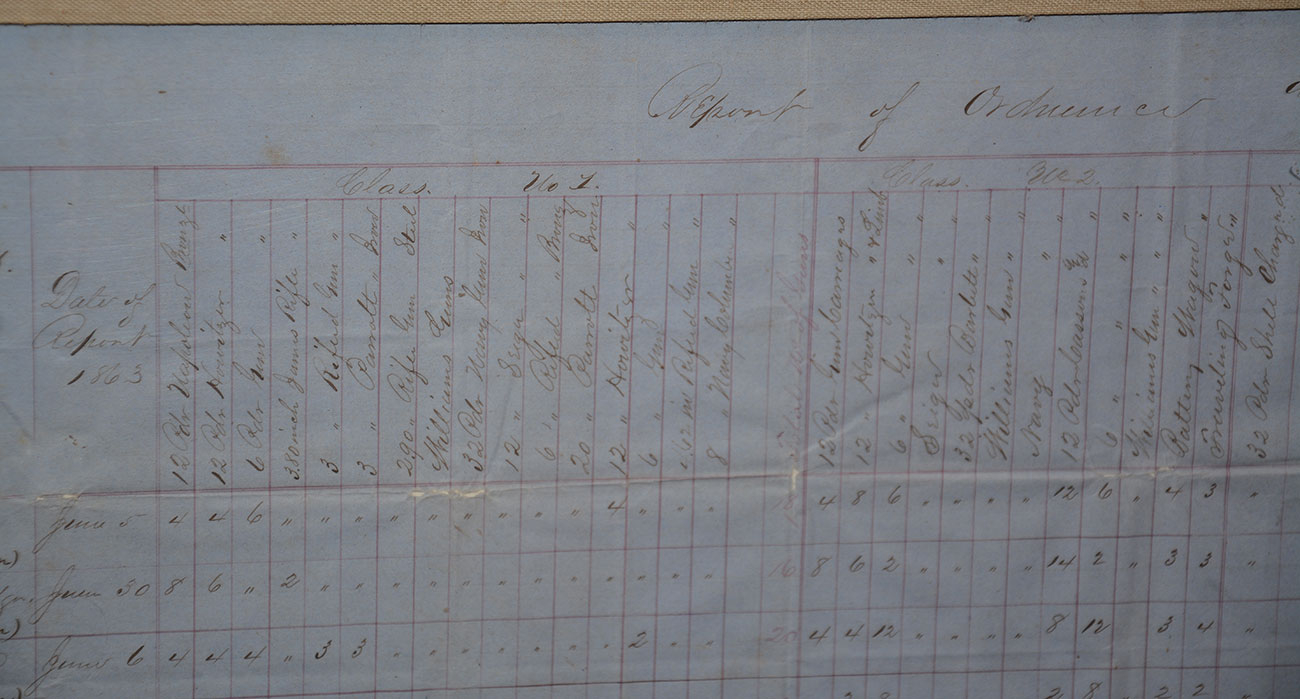 Report of Ordnance
Class. No 1.
Class. No 2.
Date of
Report
1863
12 Pdr Napoleon Bronze
12 Pdr Howitzer "
6 Pdr Gun "
380 inch James Rifle "
3 " Rifled Gun "
3 " Parrott " Iron
290 " Rifle Gun Steel
Williams Guns
32 Pdr Navy Gun Iron
12 " "
6 " Rifled " Bronze
20 " Parrott Iron
12 " Howitzer "
6 " Gun "
" 62 in Rifled Gun "
8 " Navy "
Total No of Guns
12 Pdr Gun Carriages
12 " Howitzer " & Limb
6 " Gun " "
32 Pdr "
Williams Gun " "
Navy "
12 Pdr Caissons "
6 " " "
Williams Gun " "
Battery Wagons "
Traveling Forges "
32 Pdr Shell Charged
June 5 4 4 6 " " " " " " " " " " 4 " " " 18 4 8 6 " " " " 12 6 " 4 3 "
June 30 8 6 " 2 " " " " " " " " " " " " 16 8 6 2 " " " " 14 2 " 3 3 "
June 6 4 4 4 " 3 3 " " " " " " " 2 " " 20 4 4 12 " " " " 8 12 3 4 "
2 8 2 2